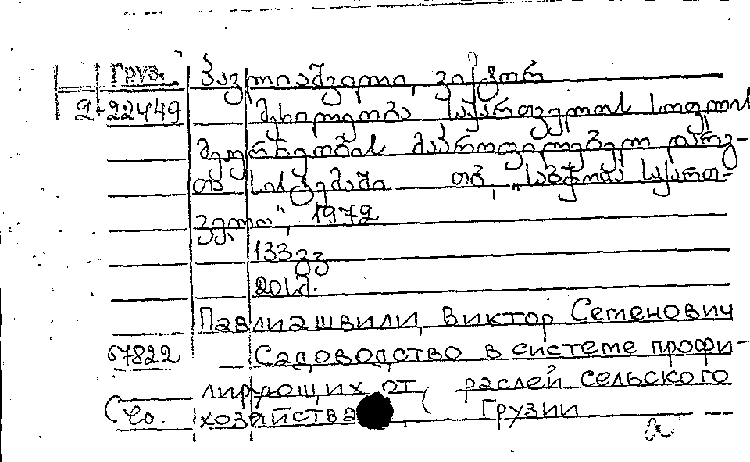 Груз. პავლიაშვილი, ვიქტორ
2-22449 მეხილეობა საქართველოს სოფლის
მეურნეობის მაპროფილებელ დარგ-
თა სისტემაში თბ., „საბჭოთა საქართ-
ველო", 1972
133 გვ
20 კ.
Павлиашвили, Виктор Семенович
67822 Садоводство в системе профи-
лирующих отраслей сельского
хозяйства Грузии